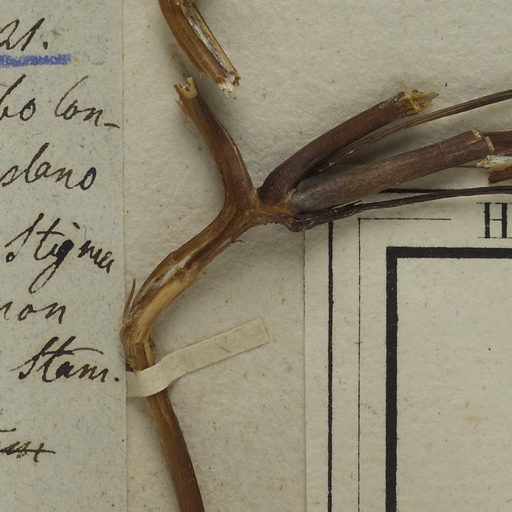 21.
bo lon-
slano
Stigma
non
Stam.
H